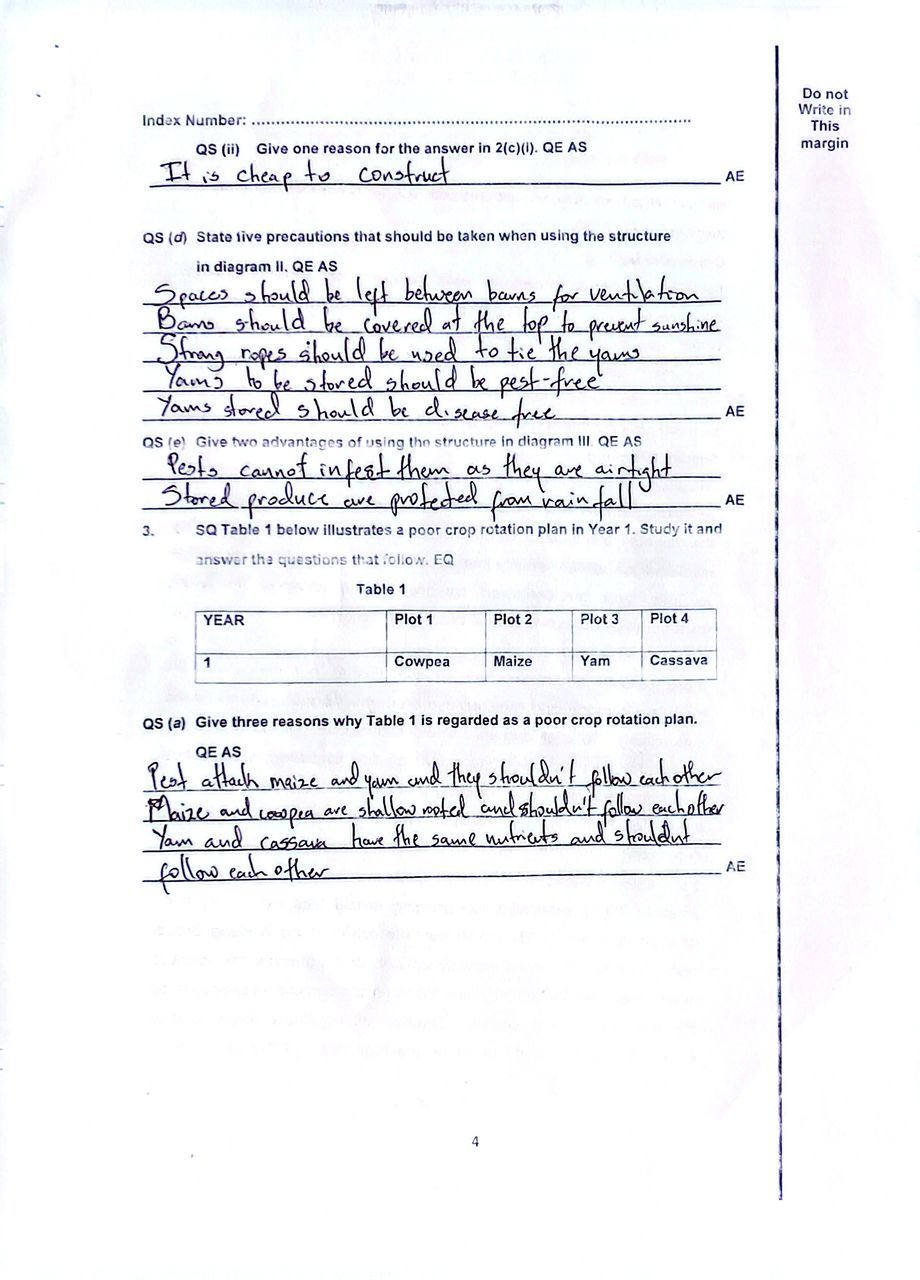 Do not
Write in
This
margin
Index Number: ....................................................................................
QS (ii) Give one reason for the answer in 2(c)(i). QE AS
It is cheap to construct AE
QS (d) State five precautions that should be taken when using the structure
in diagram II. QE AS
Spaces should be left between barns for ventilation
Barns should be covered at the top to prevent sunshine
Strong ropes should be used to tie the yams
Yams to be stored should be pest-free
Yams stored should be disease free AE
QS (e) Give two advantages of using the structure in diagram III. QE AS
Pests cannot infest them as they are airtight
Stored produce are protected from rainfall AE
3. SQ Table 1 below illustrates a poor crop rotation plan in Year 1. Study it and
answer the questions that follow. EQ
Table 1
YEAR Plot 1 Plot 2 Plot 3 Plot 4
1 Cowpea Maize Yam Cassava
QS (a) Give three reasons why Table 1 is regarded as a poor crop rotation plan.
QE AS
Pest attack maize and yam and they shouldn't follow each other
Maize and cowpea are shallow rooted and shouldn't follow each other
Yam and cassava have the same nutrients and shouldnt
follow each other AE
4